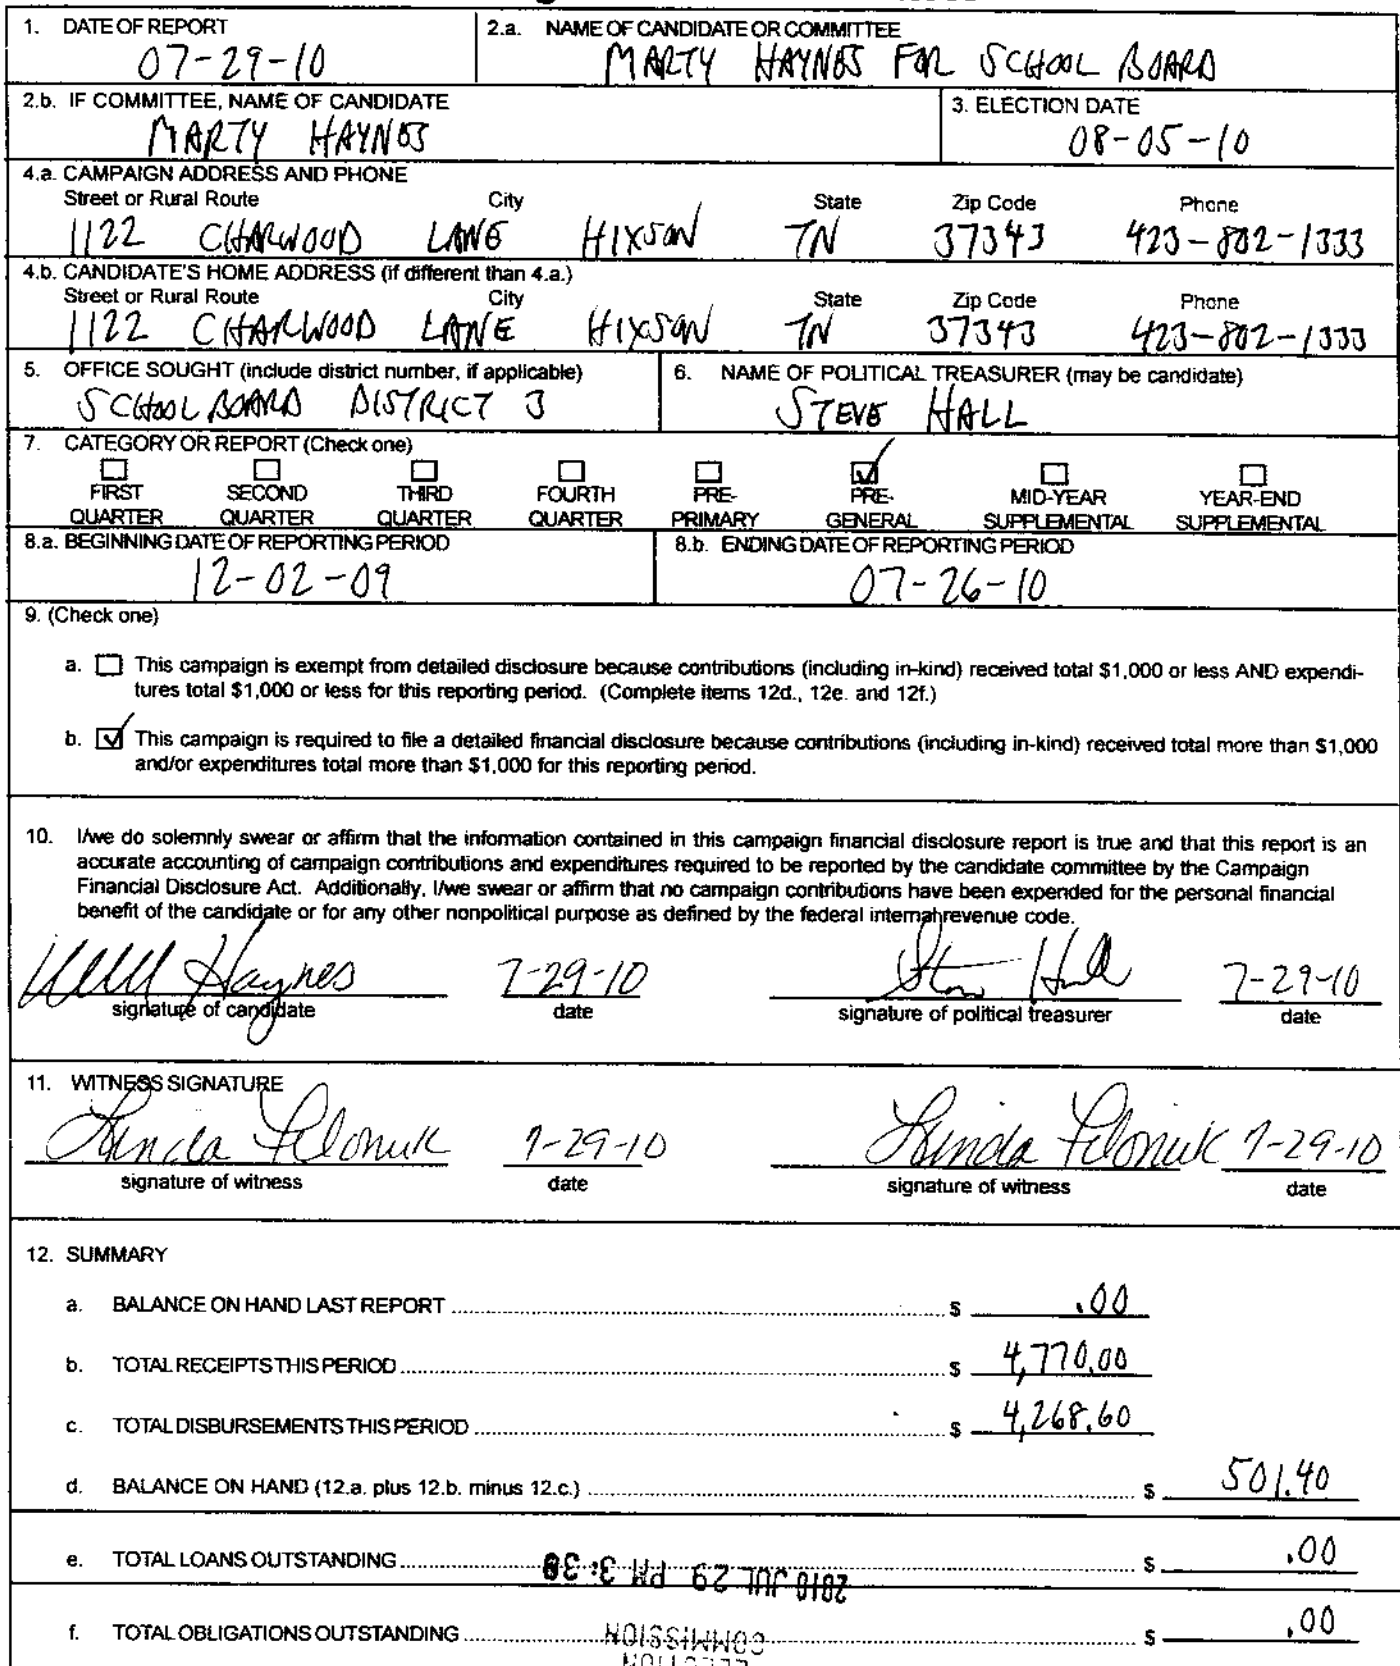 1. DATE OF REPORT
07-29-10
2.a. NAME OF CANDIDATE OR COMMITTEE
MARTY HAYNES FOR SCHOOL BOARD
2.b. IF COMMITTEE, NAME OF CANDIDATE
MARTY HAYNES
3. ELECTION DATE
08-05-10
4.a. CAMPAIGN ADDRESS AND PHONE
Street or Rural Route City State Zip Code Phone
1122 CHARWOOD LANE HIXSON TN 37343 423-802-1333
4.b. CANDIDATE'S HOME ADDRESS (if different than 4.a.)
Street or Rural Route City State Zip Code Phone
1122 CHARWOOD LANE HIXSON TN 37343 423-802-1333
5. OFFICE SOUGHT (include district number, if applicable)
SCHOOL BOARD DISTRICT 3
6. NAME OF POLITICAL TREASURER (may be candidate)
STEVE HALL
7. CATEGORY OR REPORT (Check one)
FIRST QUARTER
SECOND QUARTER
THIRD QUARTER
FOURTH QUARTER
PRE-PRIMARY
PRE-GENERAL
MID-YEAR SUPPLEMENTAL
YEAR-END SUPPLEMENTAL
8.a. BEGINNING DATE OF REPORTING PERIOD
12-02-09
8.b. ENDING DATE OF REPORTING PERIOD
07-26-10
9. (Check one)
a. This campaign is exempt from detailed disclosure because contributions (including in-kind) received total $1,000 or less AND expendi-
tures total $1,000 or less for this reporting period. (Complete items 12d., 12e. and 12f.)
b. This campaign is required to file a detailed financial disclosure because contributions (including in-kind) received total more than $1,000
and/or expenditures total more than $1,000 for this reporting period.
10. I/we do solemnly swear or affirm that the information contained in this campaign financial disclosure report is true and that this report is an
accurate accounting of campaign contributions and expenditures required to be reported by the candidate committee by the Campaign
Financial Disclosure Act. Additionally, I/we swear or affirm that no campaign contributions have been expended for the personal financial
benefit of the candidate or for any other nonpolitical purpose as defined by the federal internal revenue code.
Haynes 7-29-10 Steve Hall 7-29-10
signature of candidate date signature of political treasurer date
11. WITNESS SIGNATURE
Linda 7-29-10 Linda 7-29-10
signature of witness date signature of witness date
12. SUMMARY
a. BALANCE ON HAND LAST REPORT $ .00
b. TOTAL RECEIPTS THIS PERIOD $ 4,770.00
c. TOTAL DISBURSEMENTS THIS PERIOD $ 4,268.60
d. BALANCE ON HAND (12.a. plus 12.b. minus 12.c.) $ 501.40
e. TOTAL LOANS OUTSTANDING $ .00
2010 JUL 29 PM 3:38
f. TOTAL OBLIGATIONS OUTSTANDING $ .00
COMMISSION
ELECTION